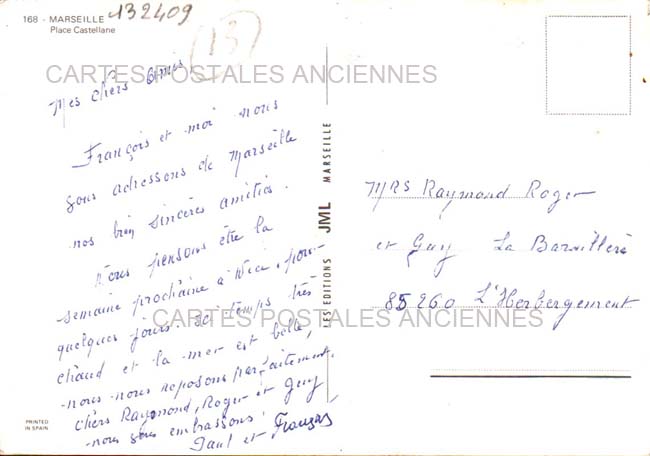 168 - MARSEILLE
Place Castellane
132409
13
CARTES POSTALES ANCIENNES
Mes chers amis,
François et moi nous
vous adressons de Marseille
nos bien sincères amitiés.
Nous pensons être la
semaine prochaine à Nice, pour
quelques jours. Le temps très
chaud et la mer est belle,
nous nous reposons parfaitement.
chers Raymond, Roger et Guy
nous vous embrassons.
Paul et François
PRINTED
IN SPAIN
LES EDITIONS JML MARSEILLE
MRS Raymond Roger
et Guy La
85260 L'Herbergement
CARTES POSTALES ANCIENNES